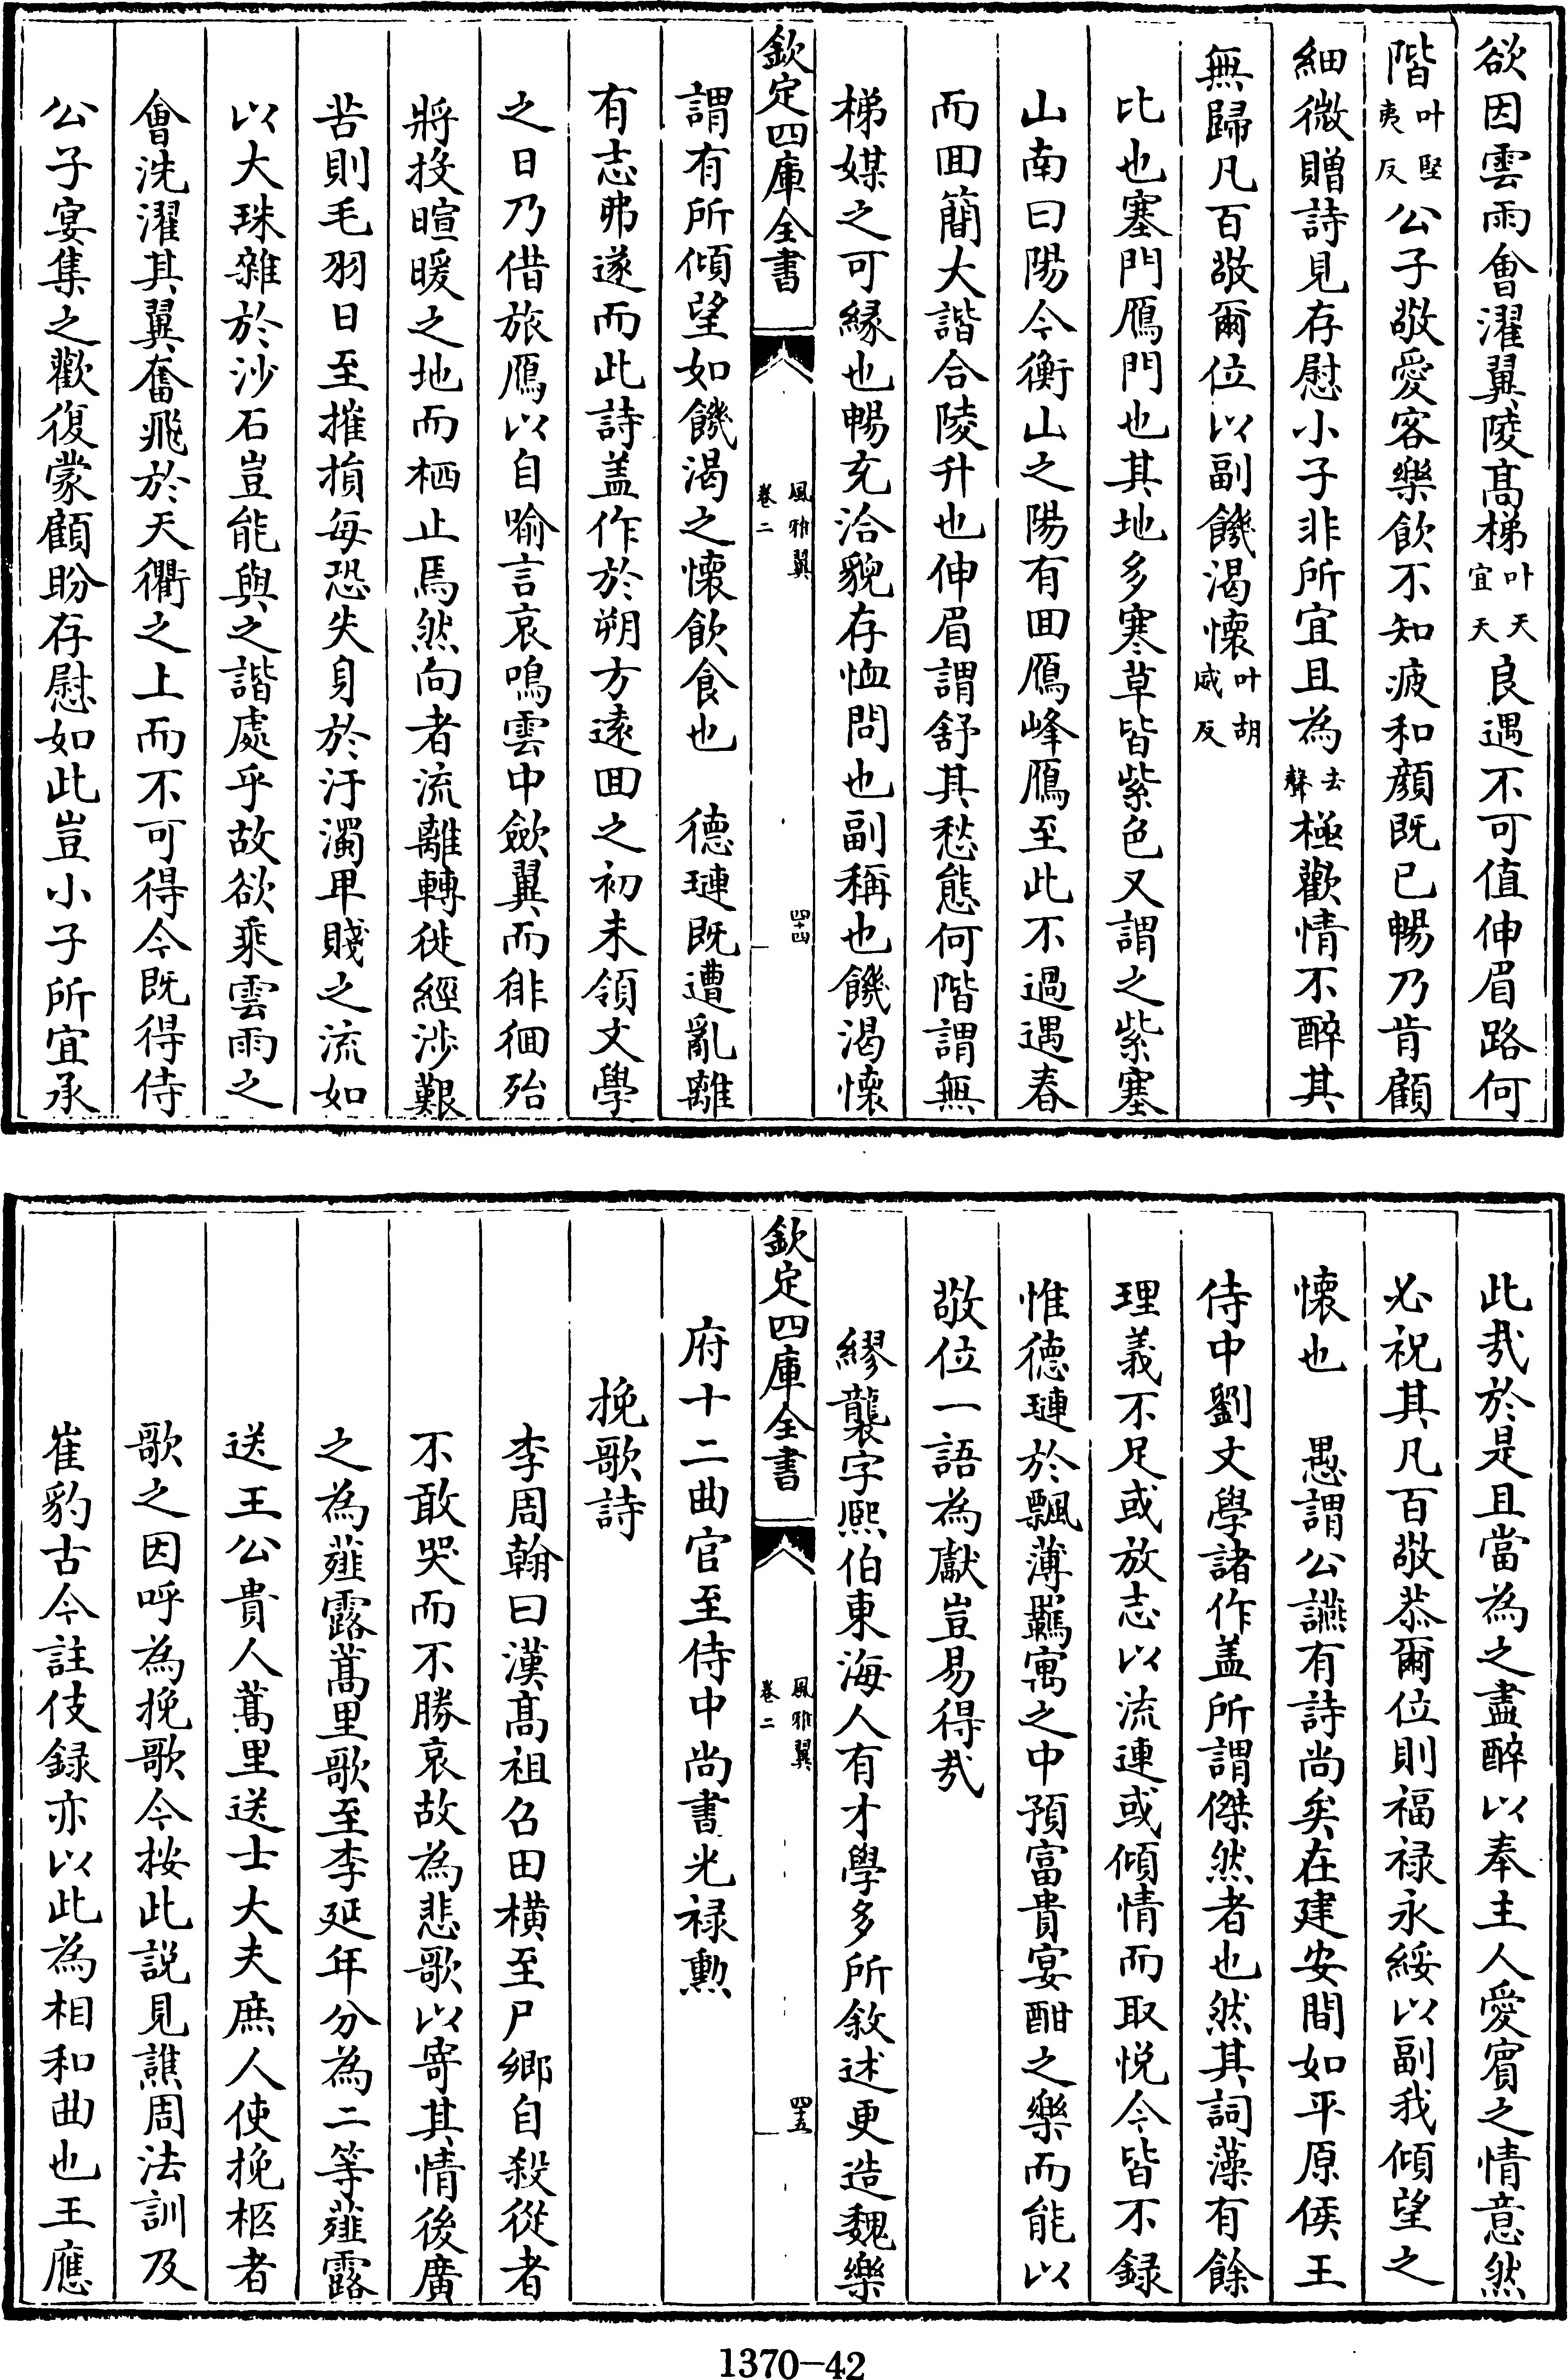 欲因雲雨會濯翼陵髙梯叶天宜天良遇不可值伸眉路何
階叶堅夷反公子敬愛客樂飲不知疲和顔既已暢乃肯顧
細微贈詩見存慰小子非所宜且為去聲極歡情不醉其
無歸凡百敬爾位以副饑渴懷叶胡威反
比也塞門鴈門也其地多寒草皆紫色又謂之紫塞
山南曰陽今衡山之陽有囬鴈峰鴈至此不過遇春
而囬簡大諧合陵升也伸眉謂舒其愁態何階謂無
梯媒之可緣也暢充洽貌存恤問也副稱也饑渴懷
欽定四庫全書
風雅翼
卷二
四十四
謂有所傾望如饑渴之懷飲食也　德璉既遭亂離
有志弗遂而此詩葢作於朔方遠囬之初未領文學
之日乃借旅鴈以自喻言哀鳴雲中歛翼而徘徊殆
將投暄暖之地而栖止焉然向者流離轉徙經渉艱
苦則毛羽日至摧損每恐失身於汙濁卑賤之流如
以大珠雜於沙石豈能與之諧處乎故欲乘雲雨之
會洗濯其翼奮飛於天衢之上而不可得今既得侍
公子宴集之歡復蒙顧盼存慰如此豈小子所宜承
此㢤於是且當為之盡醉以奉主人愛賓之情意然
必祝其凡百敬恭爾位則福禄永綏以副我傾望之
懷也　愚謂公讌有詩尚矣在建安間如平原侯王
侍中劉文學諸作葢所謂傑然者也然其詞藻有餘
理義不足或放志以流連或傾情而取悦今皆不録
惟德璉於飄薄羈寓之中預富貴宴酣之樂而能以
敬位一語為獻豈易得㢤
繆襲字熙伯東海人有才學多所敘述更造魏樂
欽定四庫全書
風雅翼
卷二
四十五
府十二曲官至侍中尚書光禄勲
挽歌詩
李周翰曰漢髙祖召田横至尸鄉自殺從者
不敢哭而不勝哀故為悲歌以寄其情後廣
之為薤露蒿里歌至李延年分為二等薤露
送王公貴人蒿里送士大夫庶人使挽柩者
歌之因呼為挽歌今按此説見譙周法訓及
崔豹古今註伎録亦以此為相和曲也王應
1370-42